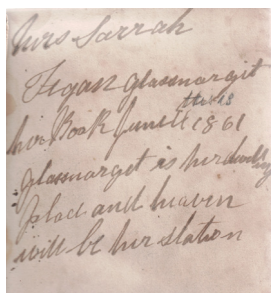 Mrs Sarrah
Figan glassmargit
her Book June the 18 1861
glassmargit is her dwelling
place and heaven
will be her station